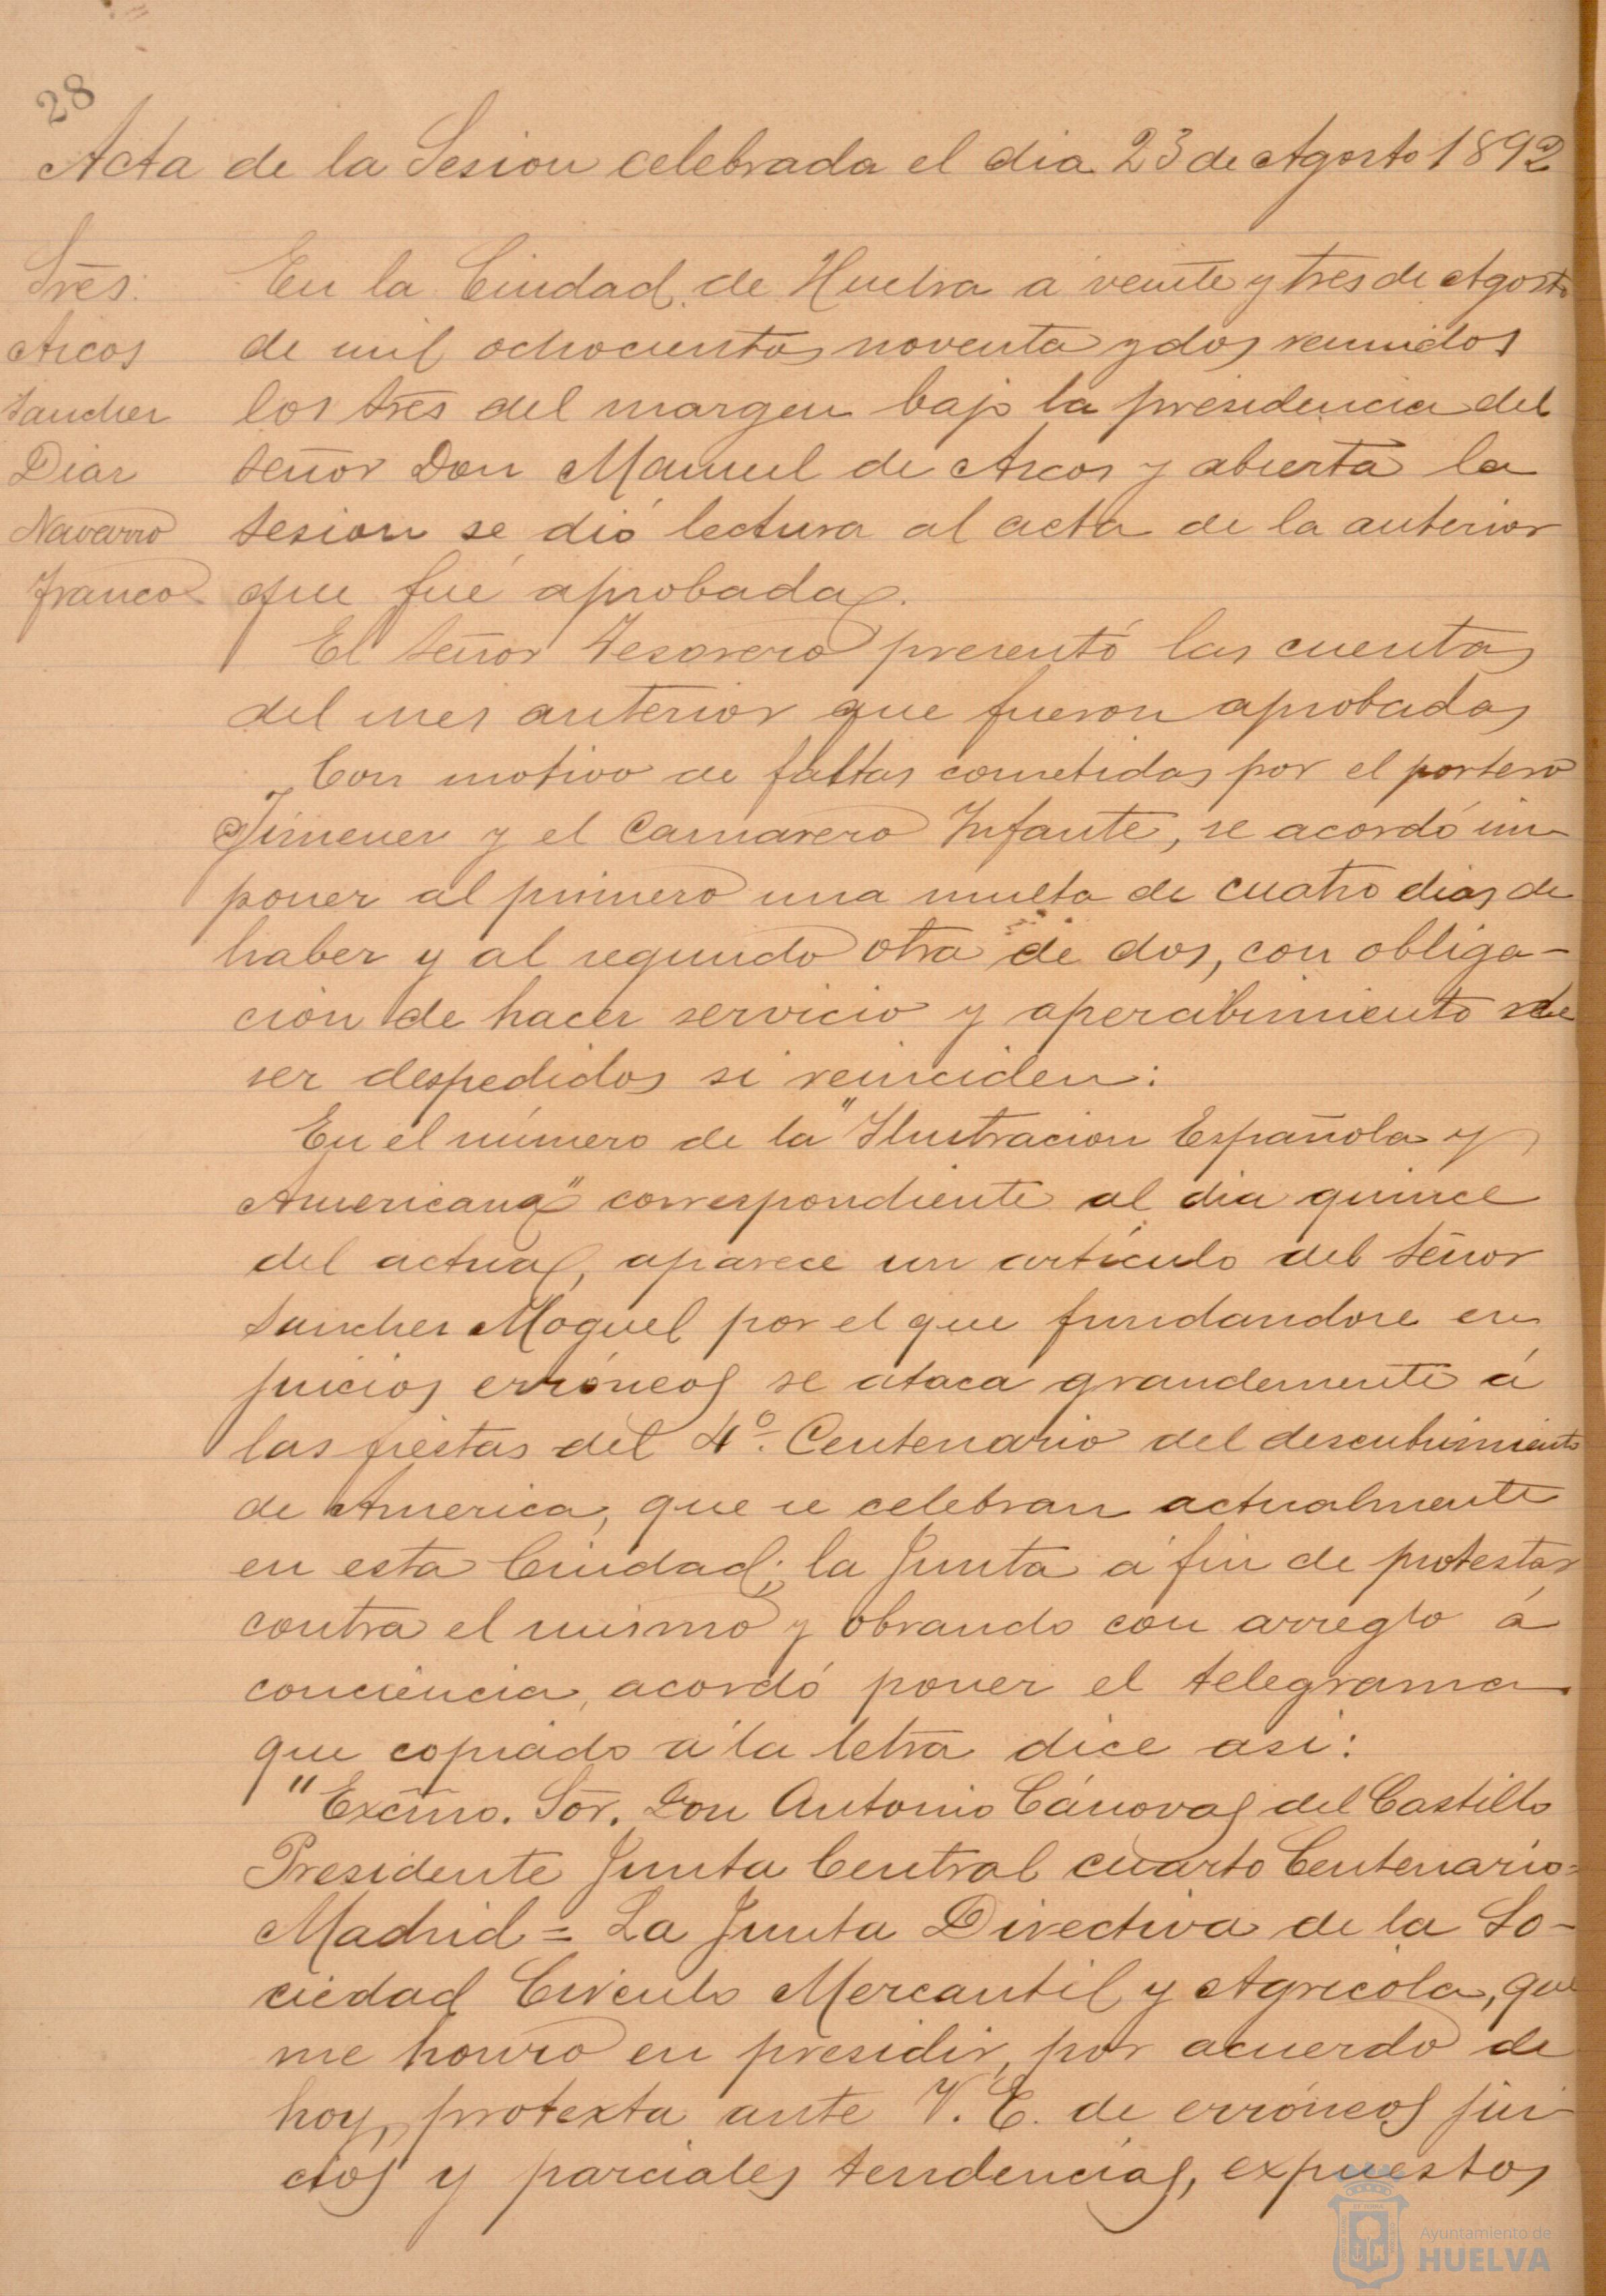 28
Acta de la Sesion celebrada el dia 23 de Agosto 1892
Sres.
Arcos
Sanchez
Diaz
Navarro
Franco
En la Ciudad de Huelva a veinte y tres de Agosto
de mil ochocientos noventa y dos reunidos
los Sres del margen bajo la presidencia del
Señor Don Manuel de Arcos y abierta la
Sesion se dió lectura al acta de la anterior
que fué aprobada.
El Señor Tesorero presentó las cuentas
del mes anterior que fueron aprobadas
Con motivo de faltas cometidas por el portero
Jimenez y el Camarero Infante, se acordó im-
poner al primero una multa de cuatro dias de
haber y al segundo otra de dos, con obliga-
cion de hacer servicio y apercibimiento de
ser despedidos si reinciden:
En el número de la "Ilustracion Española y
Americana" correspondiente al dia quince
del actual, aparece un artículo del Señor
Sanchez Moguel por el que fundandose en
juicios erróneos se ataca grandemente á
las fiestas del 4º. Centenario del descubrimiento
de America, que se celebran actualmente
en esta Ciudad; la Junta a fin de protestar
contra el mismo y obrando con arreglo á
conciencia, acordó poner el telegrama
que copiado a la letra dice asi:
"Excmo. Sor. Don Antonio Cánovas del Castillo
Presidente Junta Central cuarto Centenario=
Madrid = La Junta Directiva de la So-
ciedad Circulo Mercantil y Agricola, que
me honro en presidir, por acuerdo de
hoy, protexta ante V. E. de erróneos jui-
cios y parciales tendencias, expuestos
Ayuntamiento de
HUELVA